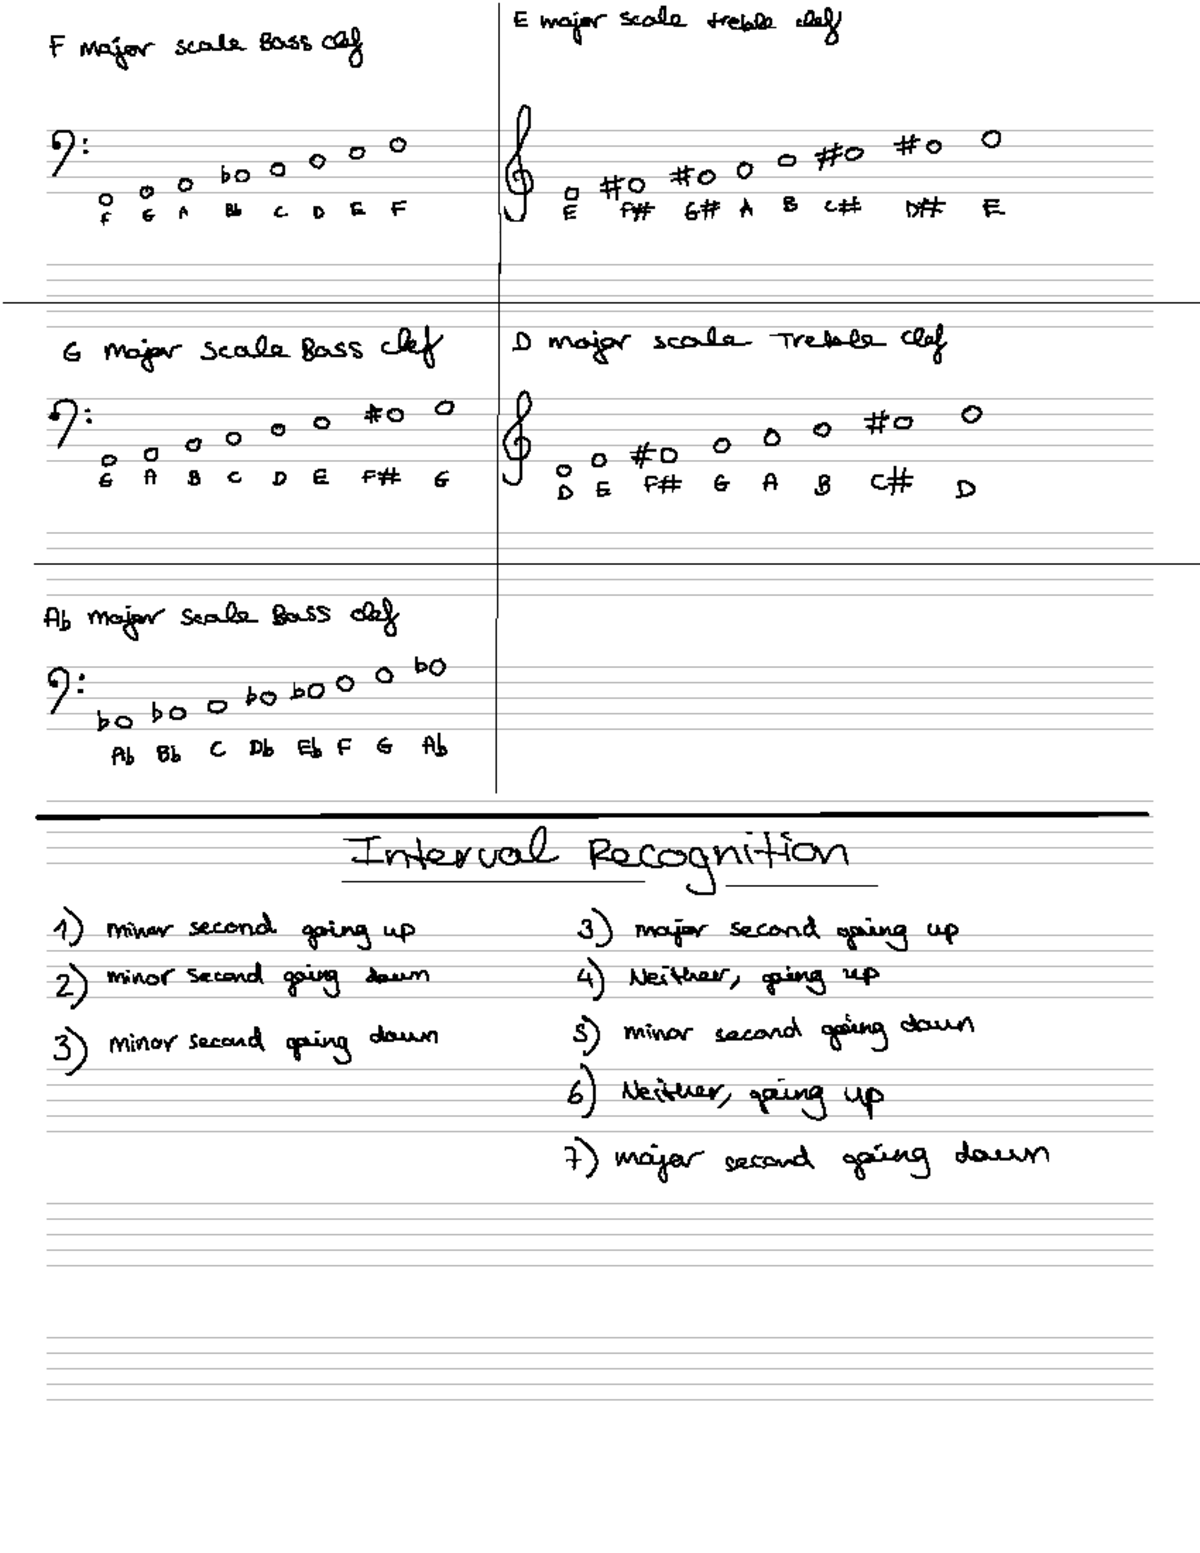 F Major scale Bass clef
F G A Bb C D E F
E major scale treble clef
E F# G# A B C# D# E
G major scale Bass clef
G A B C D E F# G
D major scale Treble clef
D E F# G A B C# D
Ab major scale Bass clef
Ab Bb C Db Eb F G Ab
Interval Recognition
1) minor second going up
2) minor second going down
3) minor second going down
3) major second going up
4) Neither, going up
5) minor second going down
6) Neither, going up
7) major second going down